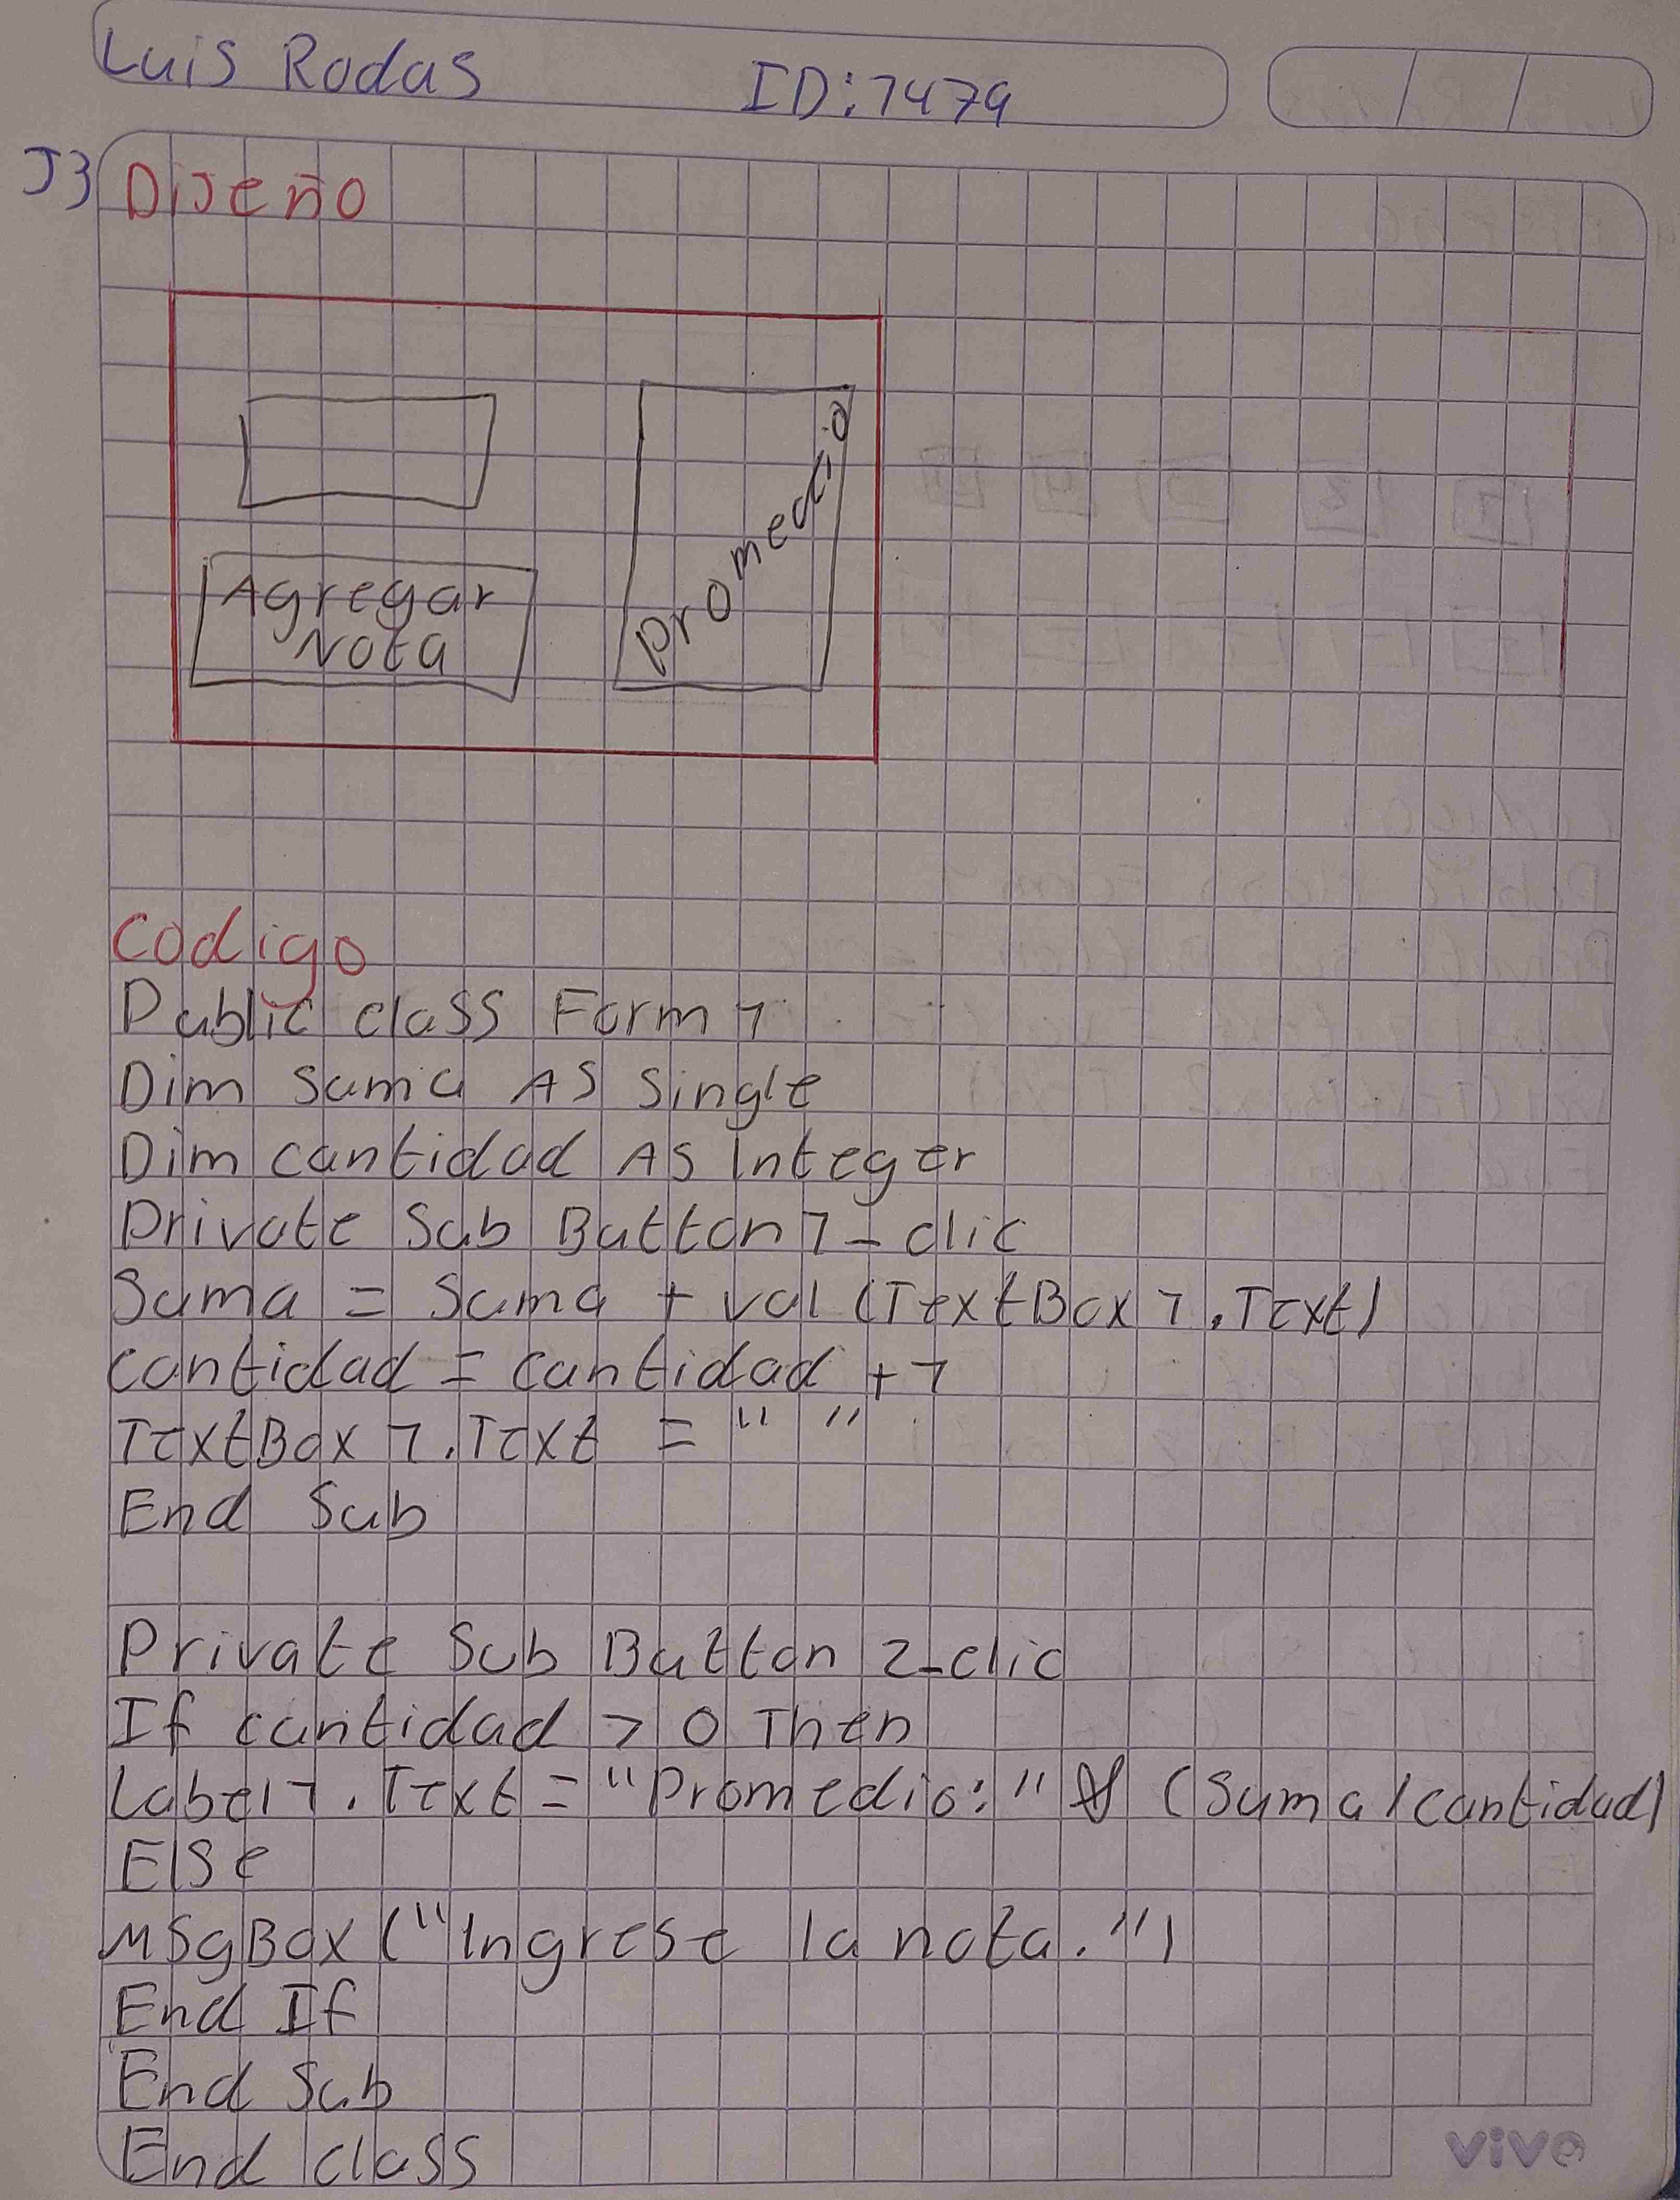 Luis Rodas ID: 1479
J3
Diseño
Agregar
Nota
Promedio
Codigo
Public class Form 1
Dim Suma AS Single
Dim cantidad AS Integer
Private Sub Button1-clic
Suma = Suma + val (TextBox 1.Text)
Cantidad = cantidad +1
TextBox 1.Text = " "
End Sub
Private Sub Button 2-clic
If cantidad > 0 Then
Label1.Text = "Promedio:" & (Suma/cantidad)
Else
MSgBox ("Ingrese la nota.")
End If
End Sub
End class
vive